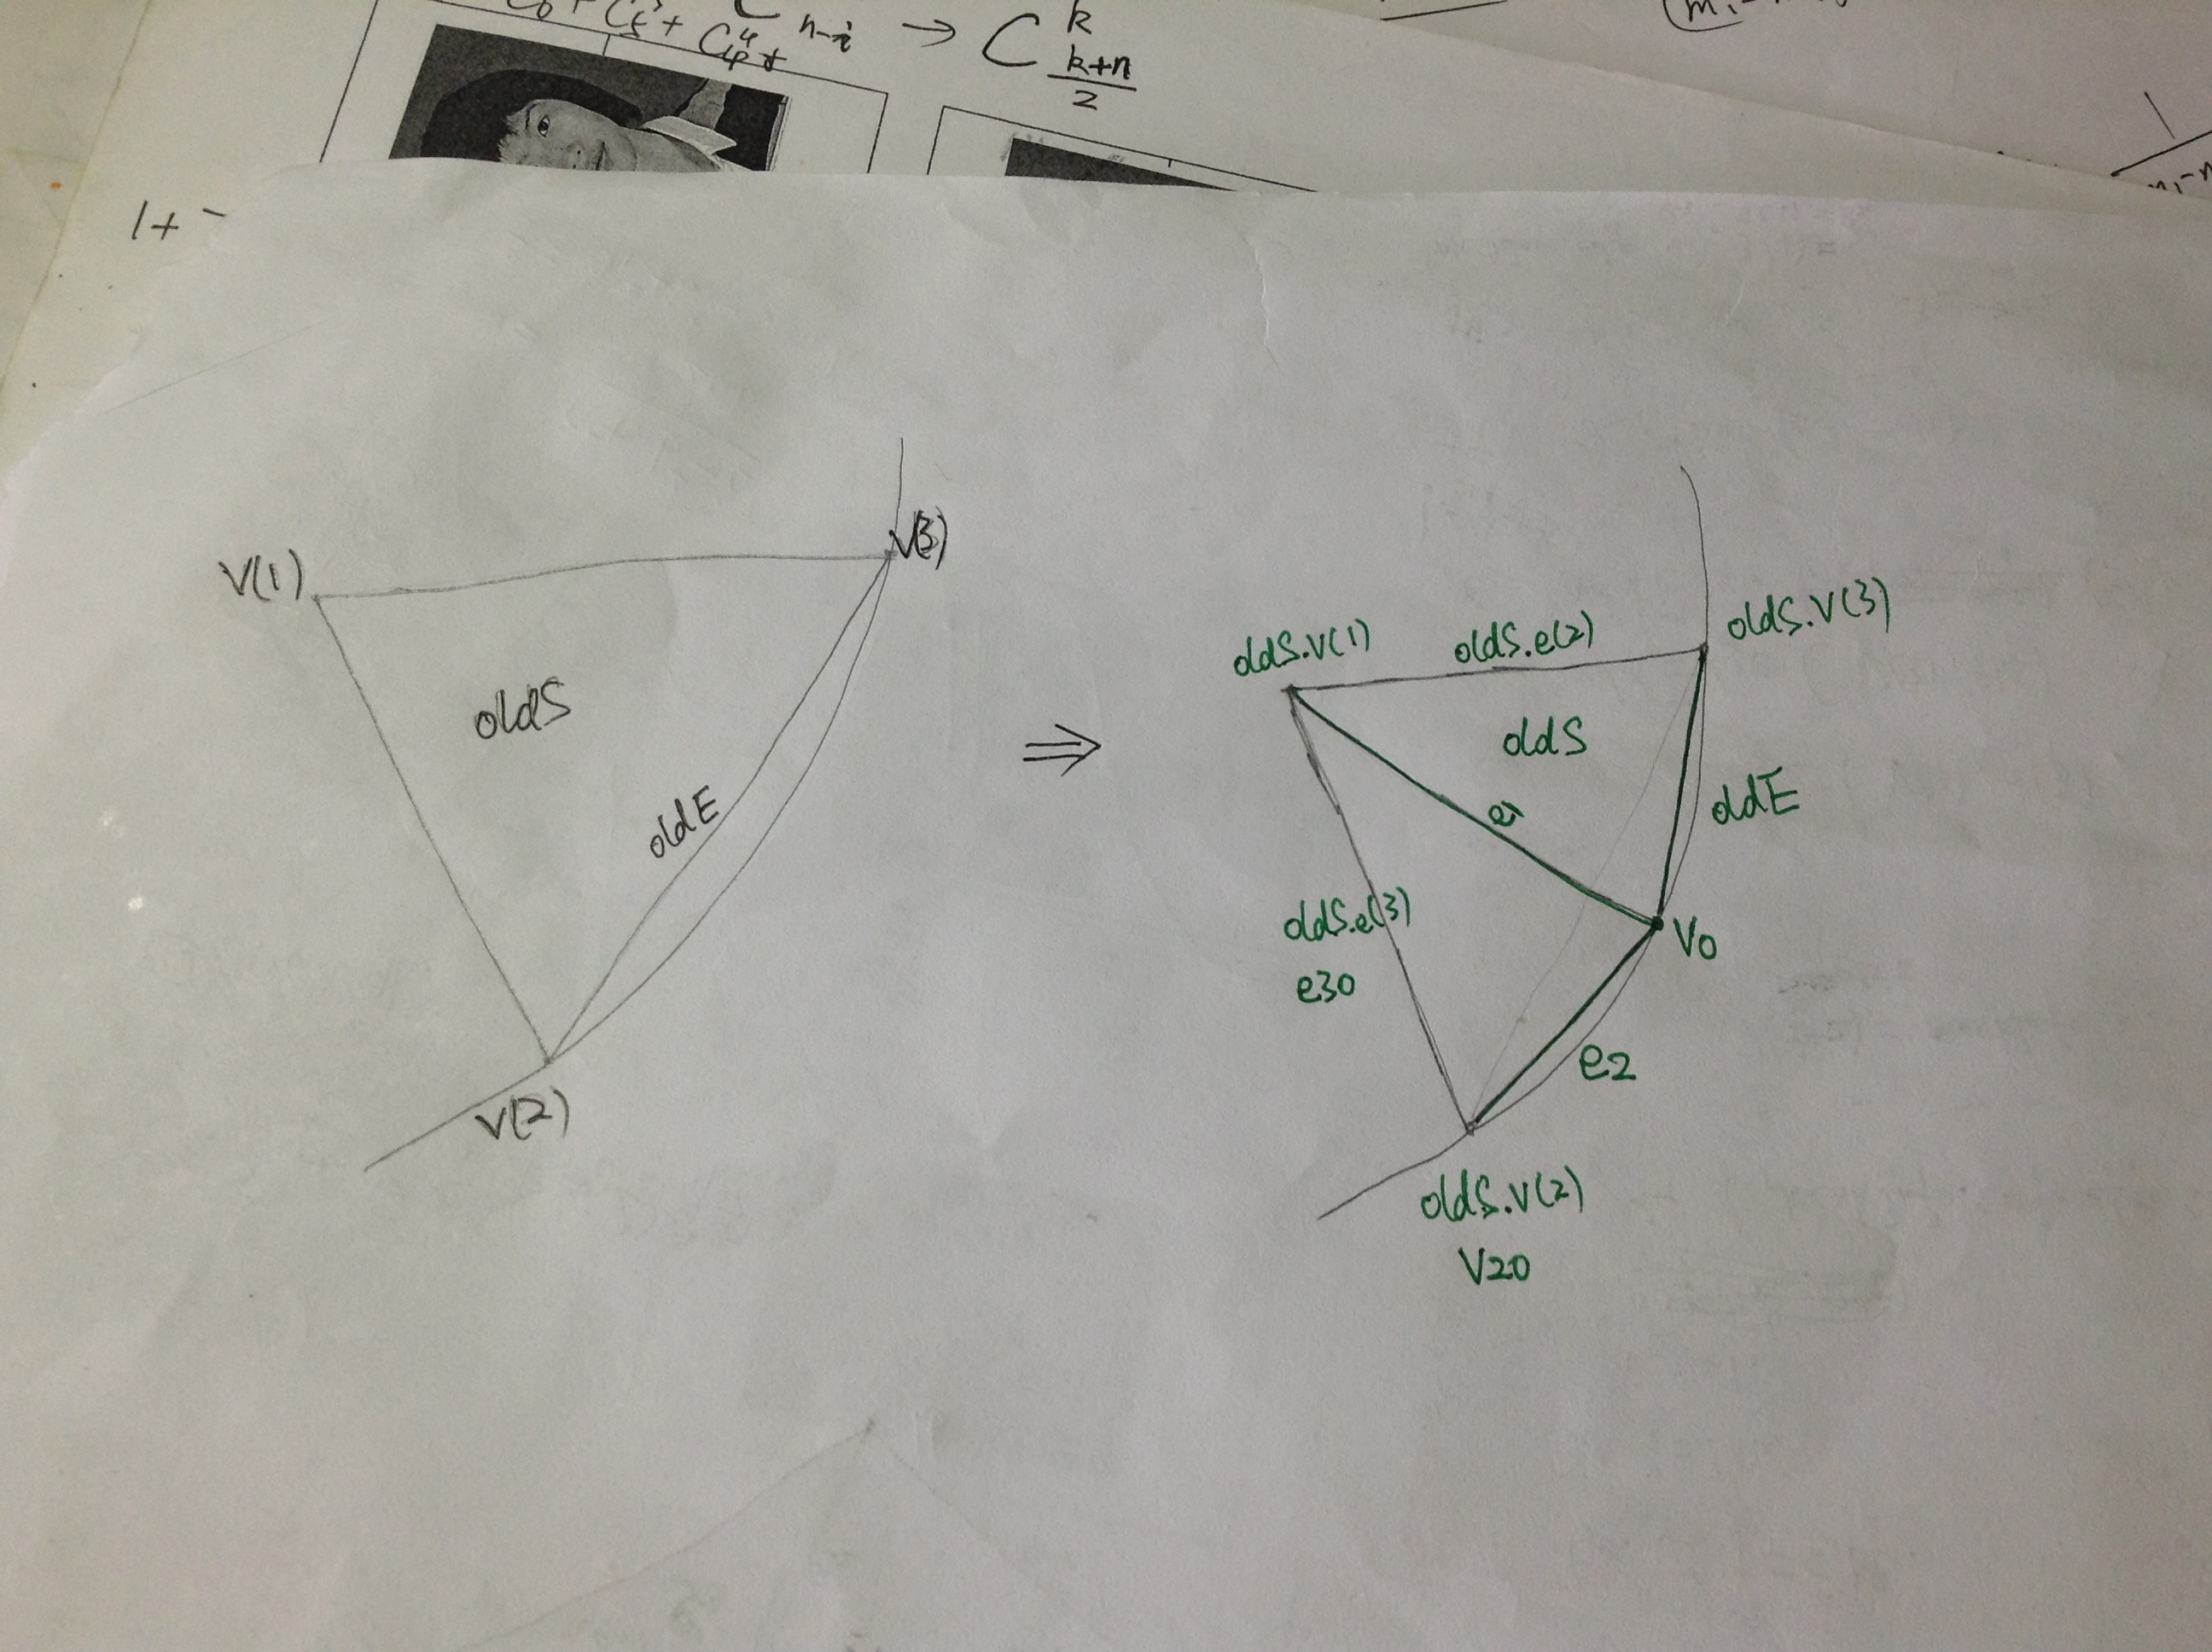 n-i → C k
k+n
2
1+-
V(1)
V(3)
oldS
oldE
V(2)
⇒
oldS.V(1)
oldS.e(2)
oldS.V(3)
oldS
oldE
oldS.e(3)
e30
V0
e2
oldS.V(2)
V20